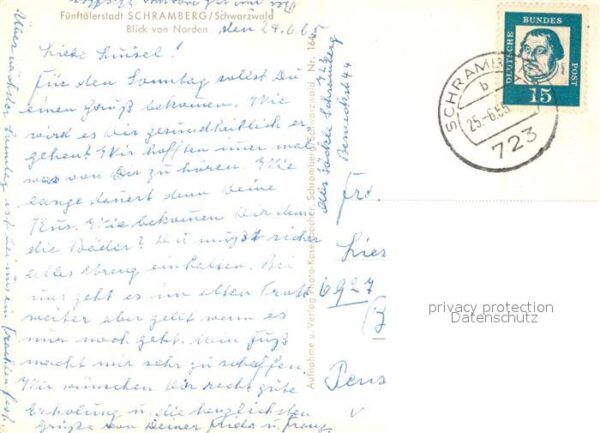 Fünftälerstadt SCHRAMBERG/Schwarzwald
Blick von Norden
den 24.6.65
Liebe Luisel!
Für den Sonntag sollst Du
einen Gruß bekommen. Wie
wird es dir gesundheitlich er
gehen? Wir hofften immer mal
was von Dir zu hören. Wie
lange dauert denn Deine
Kur. Wie bekommen Dir denn
die Bäder? Du mußt sicher
alles streng einhalten. Bei
uns geht es im alten Trott
weiter aber geht wenn es
nur noch geht. Mein Fuß
macht mir sehr zu schaffen.
Wir wünschen Dir recht gute
Erholung u. die herzlichsten
Grüße von Deiner u.
nächster Sonntag ist bei uns ein Trachtenfest.
Aufnahme u. Verlag Schramberg/Schwarzwald Nr.
Schramberg
44
Frl.
6927
DEUTSCHE BUNDES POST
15
SCHRAMBERG
b
25.-6.65
723
privacy protection
Datenschutz